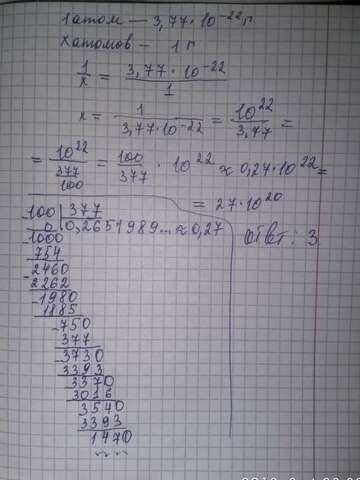 1 атом — 3,77·10⁻²² г
X атомов — 1 г
1/x = 3,77·10⁻²²/1
x = 1/3,77·10⁻²² = 10²²/3,77 =
= 10²²/377/100 = 100/377 · 10²² ≈ 0,27·10²² =
= 27·10²⁰
100 | 377
0 0,2651989... ≈ 0,27 Ответ: 3
1000
754
2460
2262
1980
1885
750
377
3730
3393
3370
3016
3540
3393
1470